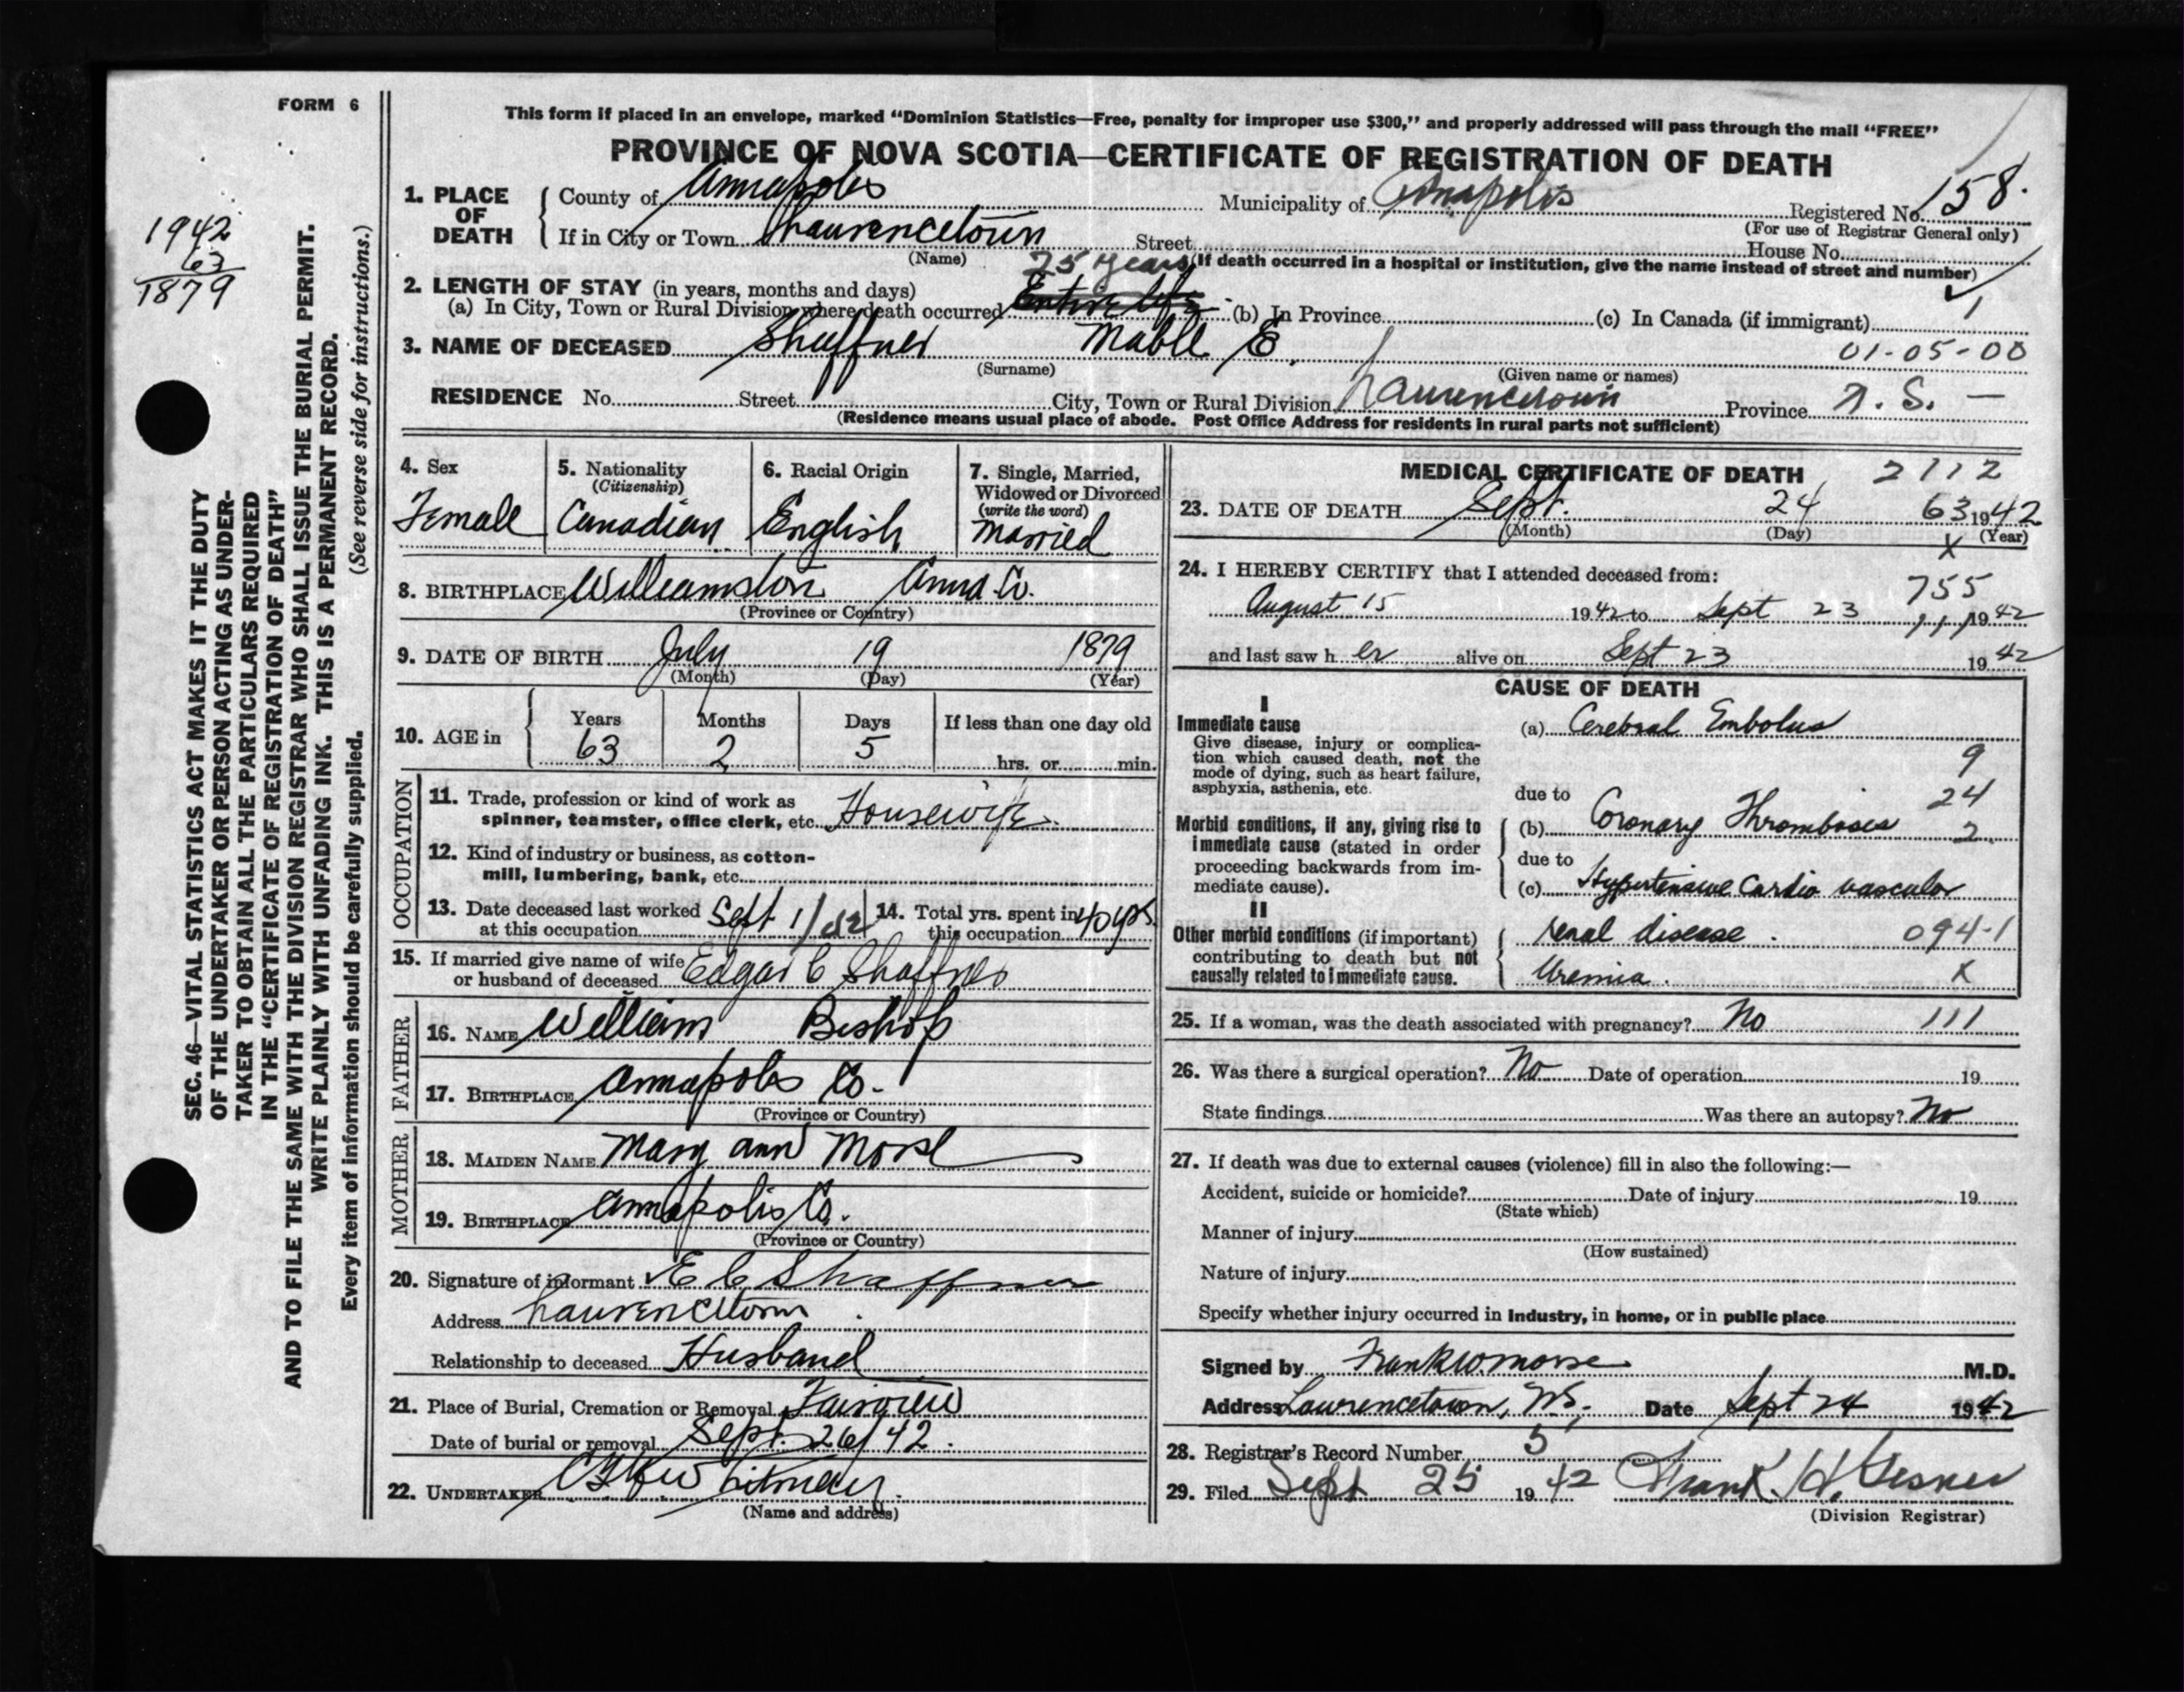 FORM 6
This form if placed in an envelope, marked "Dominion Statistics—Free, penalty for improper use $300," and properly addressed will pass through the mail "FREE"
PROVINCE OF NOVA SCOTIA—CERTIFICATE OF REGISTRATION OF DEATH
1942
63
1879
SEC. 46—VITAL STATISTICS ACT MAKES IT THE DUTY
OF THE UNDERTAKER OR PERSON ACTING AS UNDER-
TAKER TO OBTAIN ALL THE PARTICULARS REQUIRED
IN THE "CERTIFICATE OF REGISTRATION OF DEATH"
AND TO FILE THE SAME WITH THE DIVISION REGISTRAR WHO SHALL ISSUE THE BURIAL PERMIT.
WRITE PLAINLY WITH UNFADING INK. THIS IS A PERMANENT RECORD.
Every item of information should be carefully supplied. (See reverse side for instructions.)
1. PLACE OF DEATH County of Annapolis Municipality of Annapolis Registered No. 158.
(For use of Registrar General only)
If in City or Town Lawrencetown Street House No.
(Name) (If death occurred in a hospital or institution, give the name instead of street and number)
2. LENGTH OF STAY (in years, months and days) 25 years
(a) In City, Town or Rural Division where death occurred Entire life (b) In Province (c) In Canada (if immigrant) 1
3. NAME OF DECEASED Shaffner Mable E. 01-05-00
(Surname) (Given name or names)
RESIDENCE No. Street City, Town or Rural Division Lawrencetown Province N. S. —
(Residence means usual place of abode. Post Office Address for residents in rural parts not sufficient)
4. Sex Female
5. Nationality (Citizenship) Canadian
6. Racial Origin English
7. Single, Married, Widowed or Divorced (write the word) Married
8. BIRTHPLACE Williamston Anna. Co.
(Province or Country)
9. DATE OF BIRTH July 19 1879
(Month) (Day) (Year)
10. AGE in Years 63 Months 2 Days 5 If less than one day old hrs. or min.
OCCUPATION
11. Trade, profession or kind of work as
spinner, teamster, office clerk, etc. Housewife
12. Kind of industry or business, as cotton-
mill, lumbering, bank, etc.
13. Date deceased last worked at this occupation Sept 1/42 14. Total yrs. spent in this occupation 40 yrs.
15. If married give name of wife
or husband of deceased Edgar C Shaffner
FATHER
16. NAME William Bishop
17. BIRTHPLACE Annapolis Co.
(Province or Country)
MOTHER
18. MAIDEN NAME Mary Ann Morse
19. BIRTHPLACE Annapolis Co.
(Province or Country)
20. Signature of informant E C Shaffner
Address Lawrencetown
Relationship to deceased Husband
21. Place of Burial, Cremation or Removal Fairview
Date of burial or removal Sept. 26/42.
22. UNDERTAKER Whitman
(Name and address)
MEDICAL CERTIFICATE OF DEATH 2112
23. DATE OF DEATH Sept. 24 63 1942
(Month) (Day) (Year)
X
24. I HEREBY CERTIFY that I attended deceased from:
755
August 15 1942 to Sept 23 1942
111
and last saw h er alive on Sept 23 1942
CAUSE OF DEATH
I
Immediate cause
Give disease, injury or complica-
tion which caused death, not the
mode of dying, such as heart failure,
asphyxia, asthenia, etc.
(a) Cerebral Embolus
9
due to 24
Morbid conditions, if any, giving rise to
immediate cause (stated in order
proceeding backwards from im-
mediate cause).
(b) Coronary Thrombosis 2
due to
(c) Hypertensive Cardio vascular
II
Other morbid conditions (if important)
contributing to death but not
causally related to immediate cause.
renal disease. 094-1
Uremia. X
25. If a woman, was the death associated with pregnancy? No 111
26. Was there a surgical operation? No Date of operation 19
State findings Was there an autopsy? No
27. If death was due to external causes (violence) fill in also the following:—
Accident, suicide or homicide? Date of injury 19
(State which)
Manner of injury
(How sustained)
Nature of injury
Specify whether injury occurred in industry, in home, or in public place
Signed by Frank W Morse M.D.
Address Lawrencetown, N.S. Date Sept 24 1942
28. Registrar's Record Number 5
29. Filed Sept 25 1942 Frank H. Gesner
(Division Registrar)